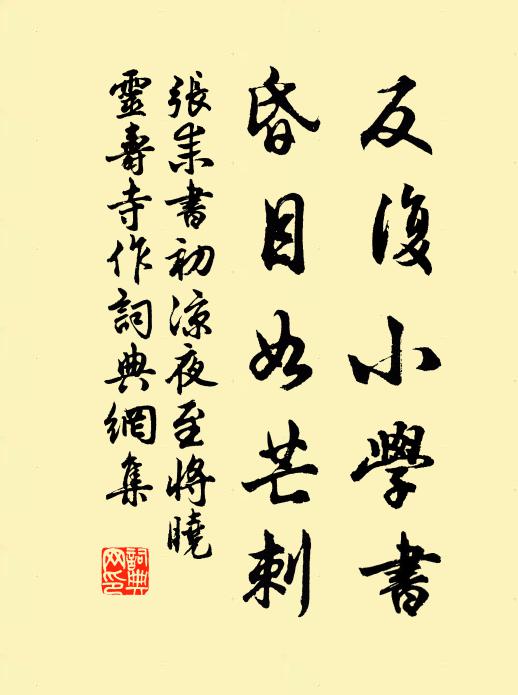 反復小學書
昏目如芒刺
張耒書初涼夜至將曉
靈壽寺作詞典網集
詞典
网印